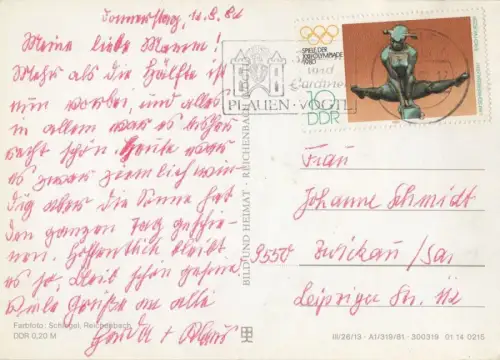 Donnerstag, 12.8.82
Meine liebe Mamm!
Mehr als die Hälfte ist
nun vorbei, und alles
in allem war es bisher
recht schön. Heute war
es zwar ziemlich win-
dig aber die Sonne hat
den ganzen Tag geschie-
nen. Hoffentlich bleibt
es so. Bleib schön gesund
Viele Grüße an alle
+ Klaus
Farbfoto: Schlegel, Reichenbach
DDR 0,20 M
BILD UND HEIMAT · REICHENBACH
und
Gardinen
PLAUEN · VOGTL
SPIELE DER
XXII. OLYMPIADE
1980
DDR
Frau
Johanne Schmidt
9550 Zwickau/Sa.
Leipziger Str. 112
III/26/13 · A1/319/81 · 300319 01 14 0215